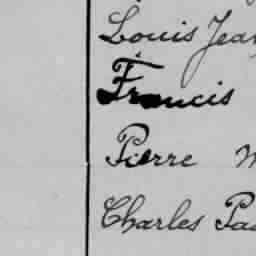 Louis Jean
Francis
Pierre
Charles